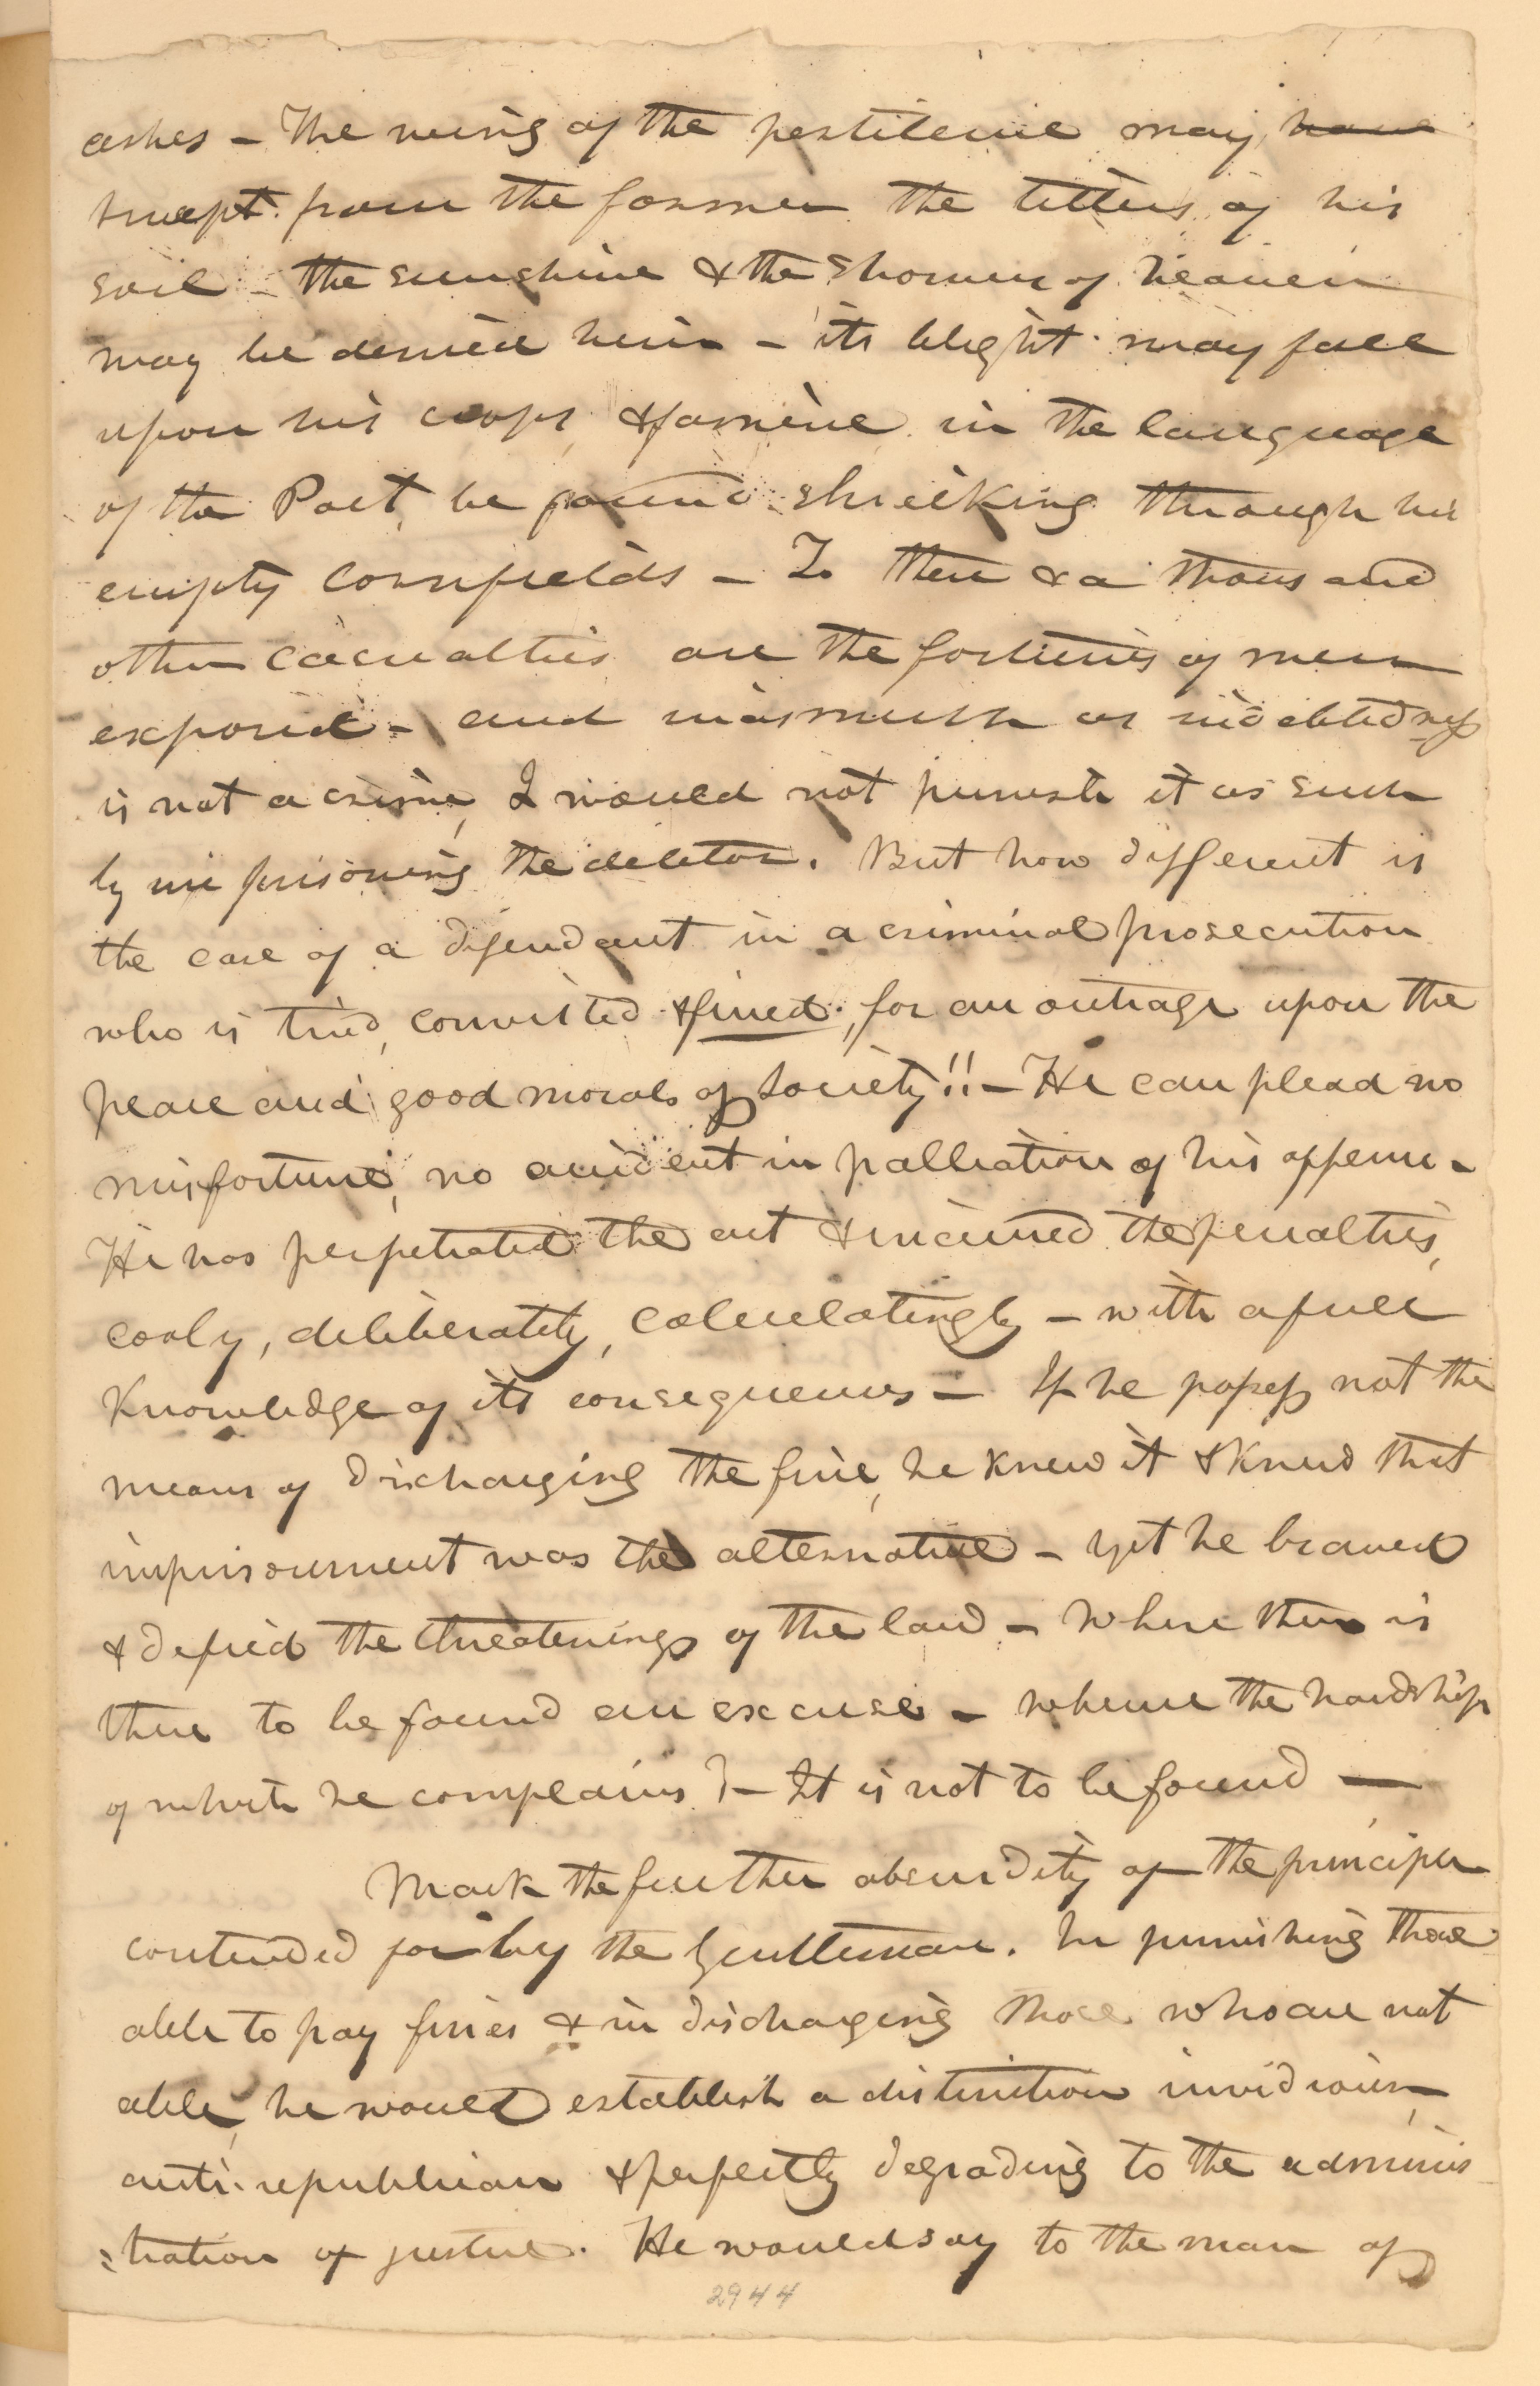 ashes – The wing of the pestilence may have
swept from the farmer the tillers of his
soil – the sunshine & the showers of heaven
may be denied him – its blight may fall
upon his crops & famine in the language
of the Poet, be found shrieking through his
empty cornfields – To these & a thousand
other casualties are the fortunes of men
exposed – and inasmuch as indebtedness
is not a crime, I would not punish it as such
by imprisoning the debtor. But how different is
the case of a defendant in a criminal prosecution
who is tried, convicted & fined, for an outrage upon the
peace and good morals of society!! – He can plead no
misfortune, no accident in palliation of his offence –
He has perpetrated the act & incurred the penalties,
cooly, deliberately, calculatingly – with a full
Knowledge of its consequences – If he possess not the
means of discharging the fine, he knew it & knew that
imprisonment was the alternative – yet he braved
& defied the threatenings of the law – Where then is
there to be found an excuse – whence the hardship
of which he complains? – It is not to be found —
Mark the further absurdity of the principle
contended for by the Gentleman. In punishing those
able to pay fines & in discharging those who are not
able, he would establish a distinction invidious,–
anti-republican & perfectly degrading to the adminis
=tration of justice. He would say to the man of
2944